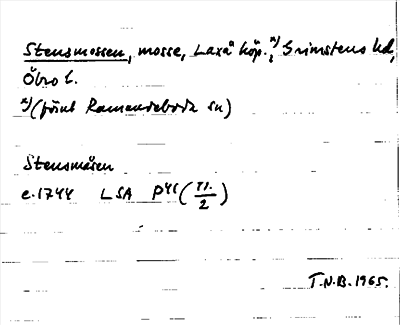 Stensmossen, mosse, Laxå köp., x) Grimstens hd,
Öbro l.
x) (förut Ramundeboda sn)
Stensmåsen
e. 1744 LSA P41 (11./2)
T.N.B. 1965.